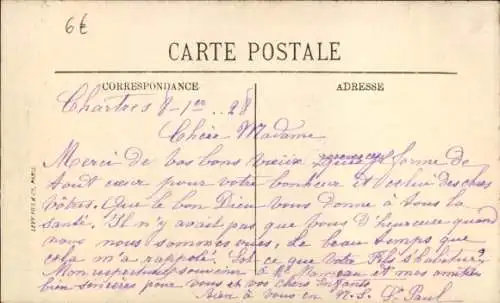 6€
CARTE POSTALE
CORRESPONDANCE
ADRESSE
Chartres 8-1er .. 28
Chère Madame
Merci de vos bons vœux je forme de
tout cœur pour votre bonheur et celui des chers
vôtres. Que le bon Dieu vous donne à tous la
santé. Il n'y avait pas que vous d'heureuse quand
nous nous sommes vues, le beau temps que
cela m'a rappelé. Est ce que votre Fils
Mon respectueux souvenir à et mes amitiés
bien sincères pour vous et vos chers enfants
bien à vous en N.S. St Paul
LEVY FILS & Cie, PARIS